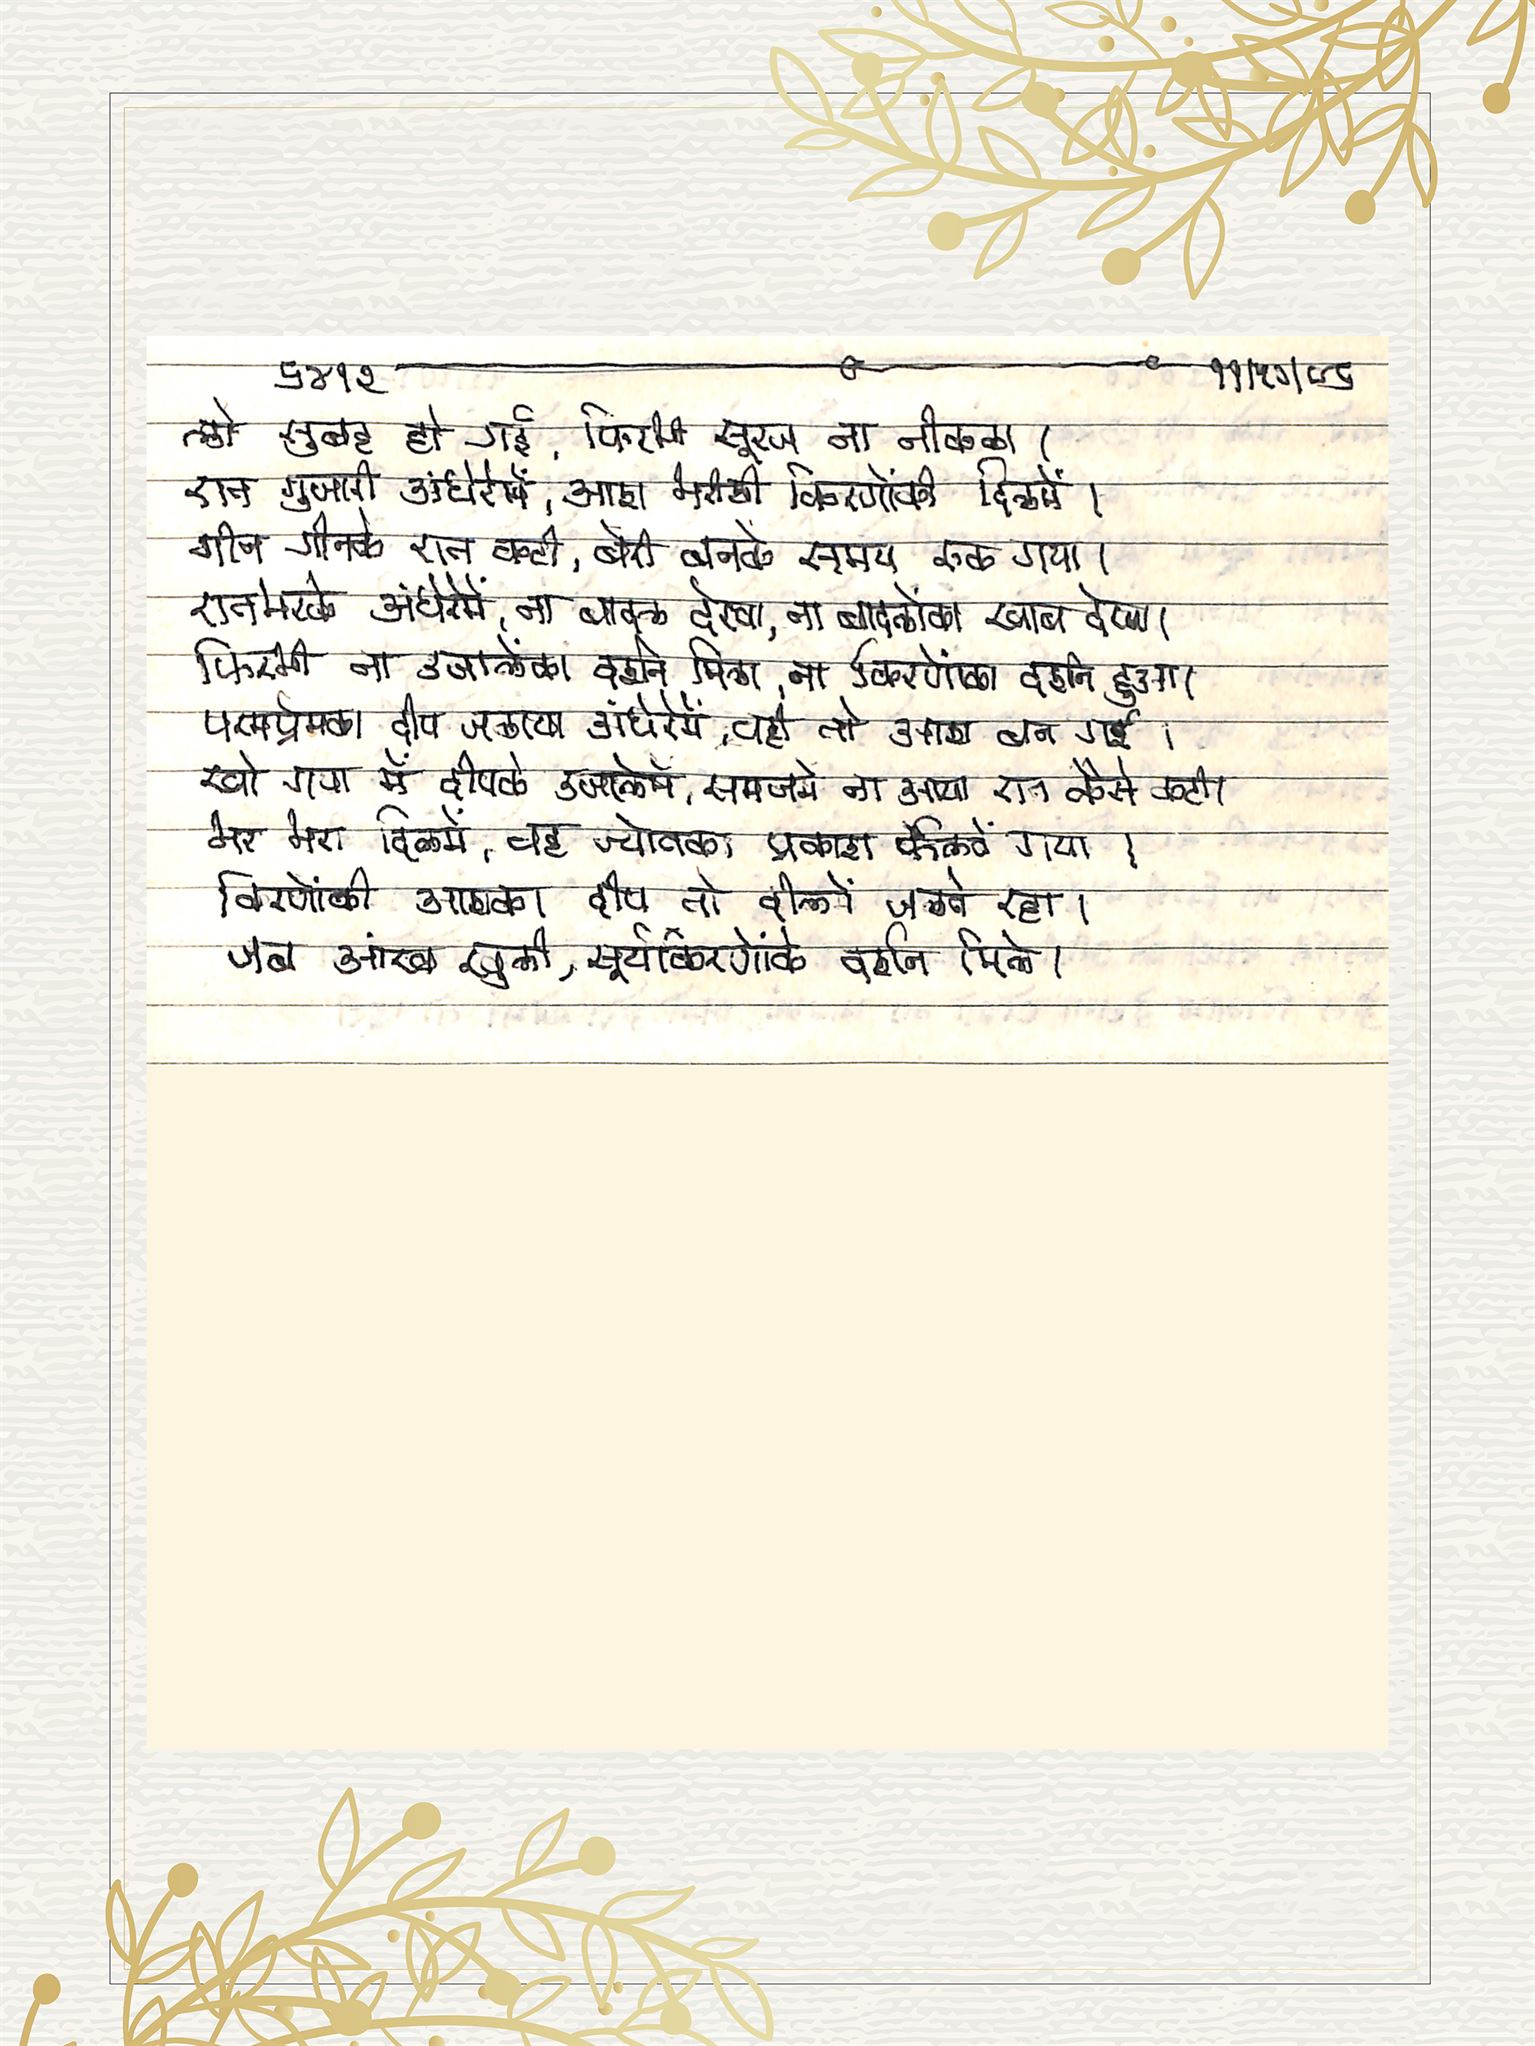 ५४१२ ११/५०/८५
लो सुबह हो गई, फिरभी सूरज ना नीकळा ।
रात गुजारी अंधेरेमें, आश भरीथी किरणोंकी दिलमें ।
गीन गीनके रात कटी, बैरी बनके समय रुक गया ।
रातभरके अंधेरेमें, ना बादल देखा, ना बादलोंका ख्वाब देखा ।
फिरभी ना उजालेंका दर्शन मिला, ना किरणोंका दर्शन हुआ ।
परमप्रेमका दीप जलाया अंधेरेमें, वही तो आश बन गई ।
खो गया मैं दीपके उजालेमें, समजमें ना आया रात कैसे कटी ।
मेरे दिलमें, वह ज्योतका प्रकाश गया ।
किरणोंकी आशका दीप तो दीलमें जलते रहा ।
जब आंख खुली, सूर्यकिरणोंके दर्शन मिले ।